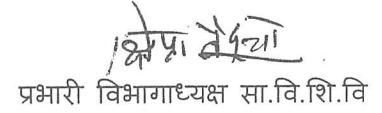 प्रभारी विभागाध्यक्ष सा.वि.शि.वि